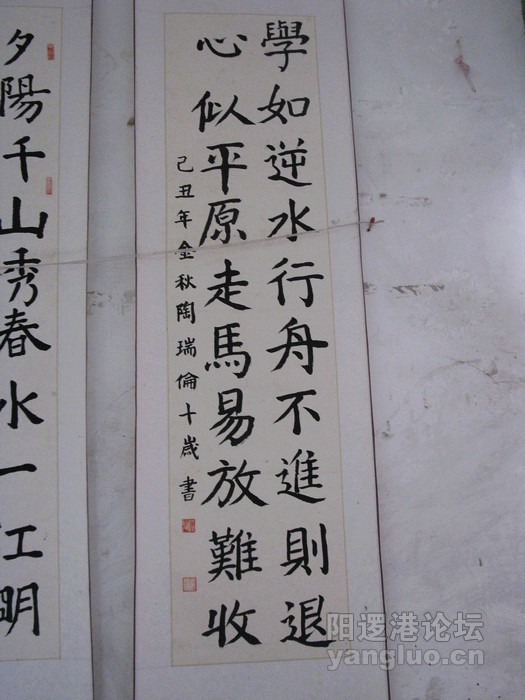 學如逆水行舟不進則退
心似平原走馬易放難收
己丑年金秋陶瑞倫十歲書
夕陽千山秀春水一江明
阳逻港论坛
yangluo.cn